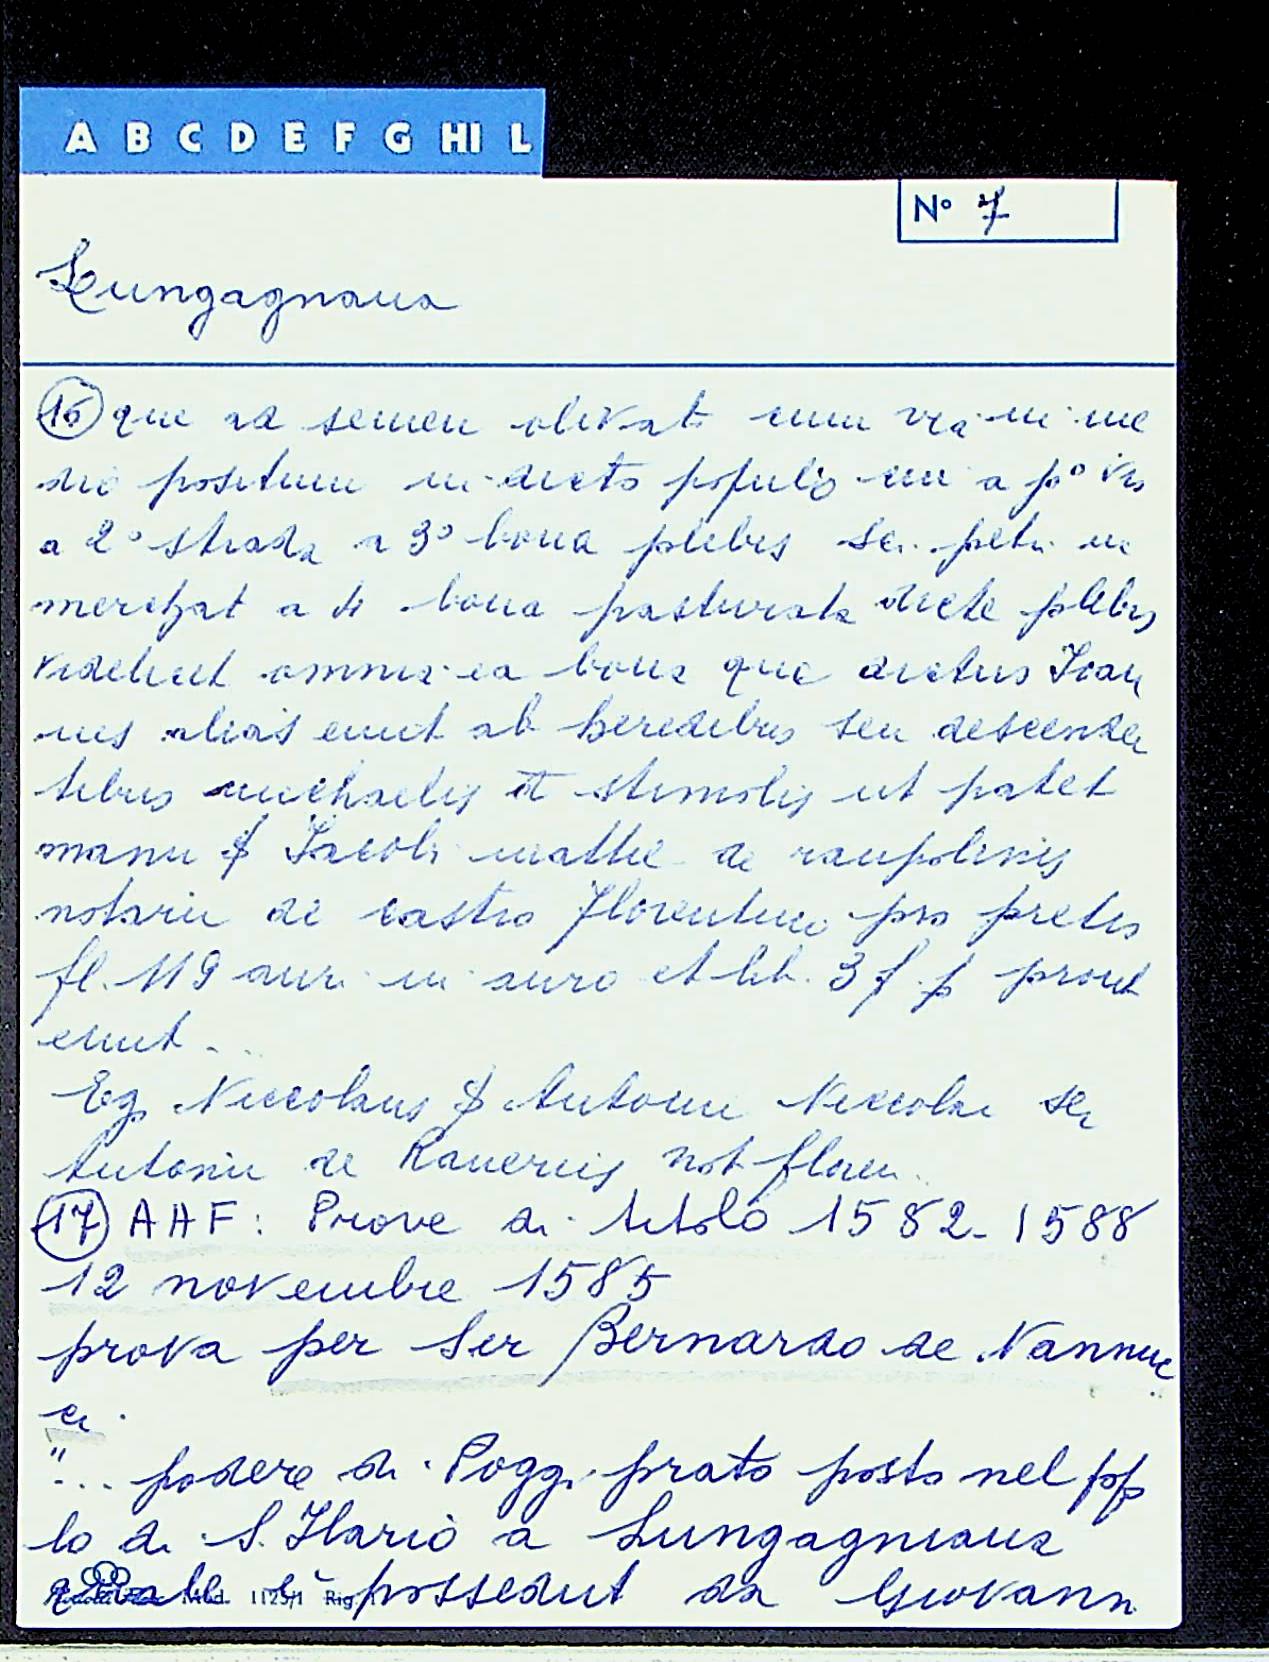 A B C D E F G HI L
Nº 7
Lungagnana
16 que ad semen olivat cum via in me
dio positum in dicto populo cui a pº via
a 2º strada a 3º bona plebis sci petri in
merchat a 4 bona pasturata dicte plebis
videlicet omnia ea bona que dictus Ioan
nes alias emit ab heredibus seu descenden
tibus michaelis et stimolis ut patet
manu Iacobi mathe de
notarii de castro florentino pro pretio
fl. 119 auri in auro et lib. 3 f. p prout
emit...
Eg. Niccolaus Antonii Niccolai ser
Antonii de not floren.
17 AAF: Prove di titolo 1582-1588
12 novembre 1585
prova per Ser Bernardo de Nannuc
ci.
"... podere di Poggi prato posto nel pop
lo di S. Ilario a Lungagniana
quale è possedut da Giovann
Mod. 1125/1 Rig.